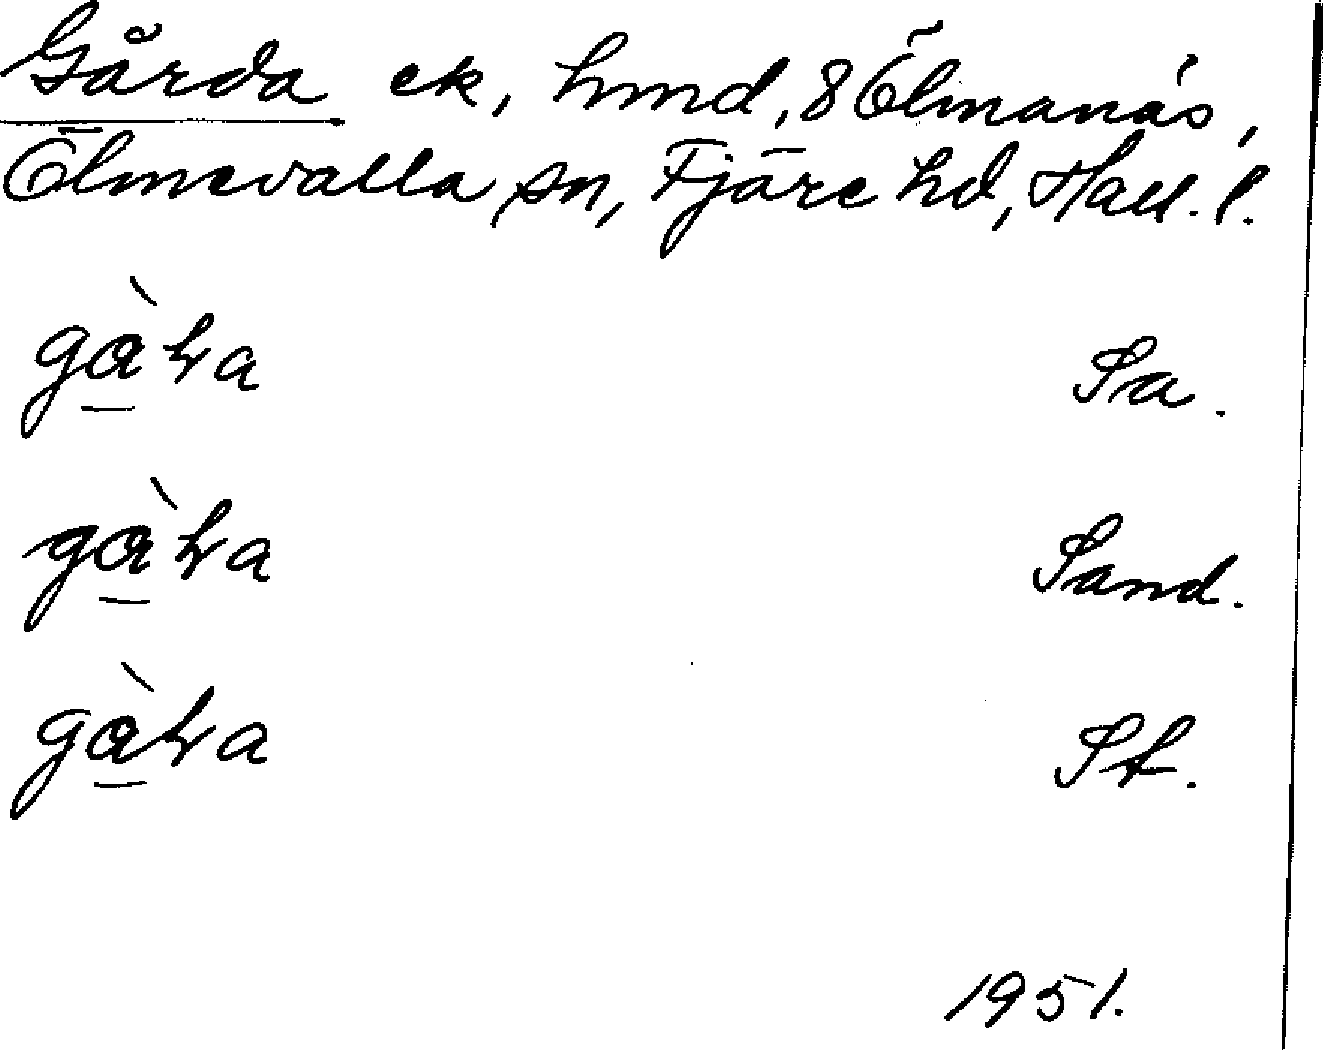 Gårda ek, hmd, 8 Ölmanäs,
Ölmevalla sn, Fjäre hd, Hall. l.
gàƚa Sa.
gàƚa Sand.
gàƚa St.
1951.